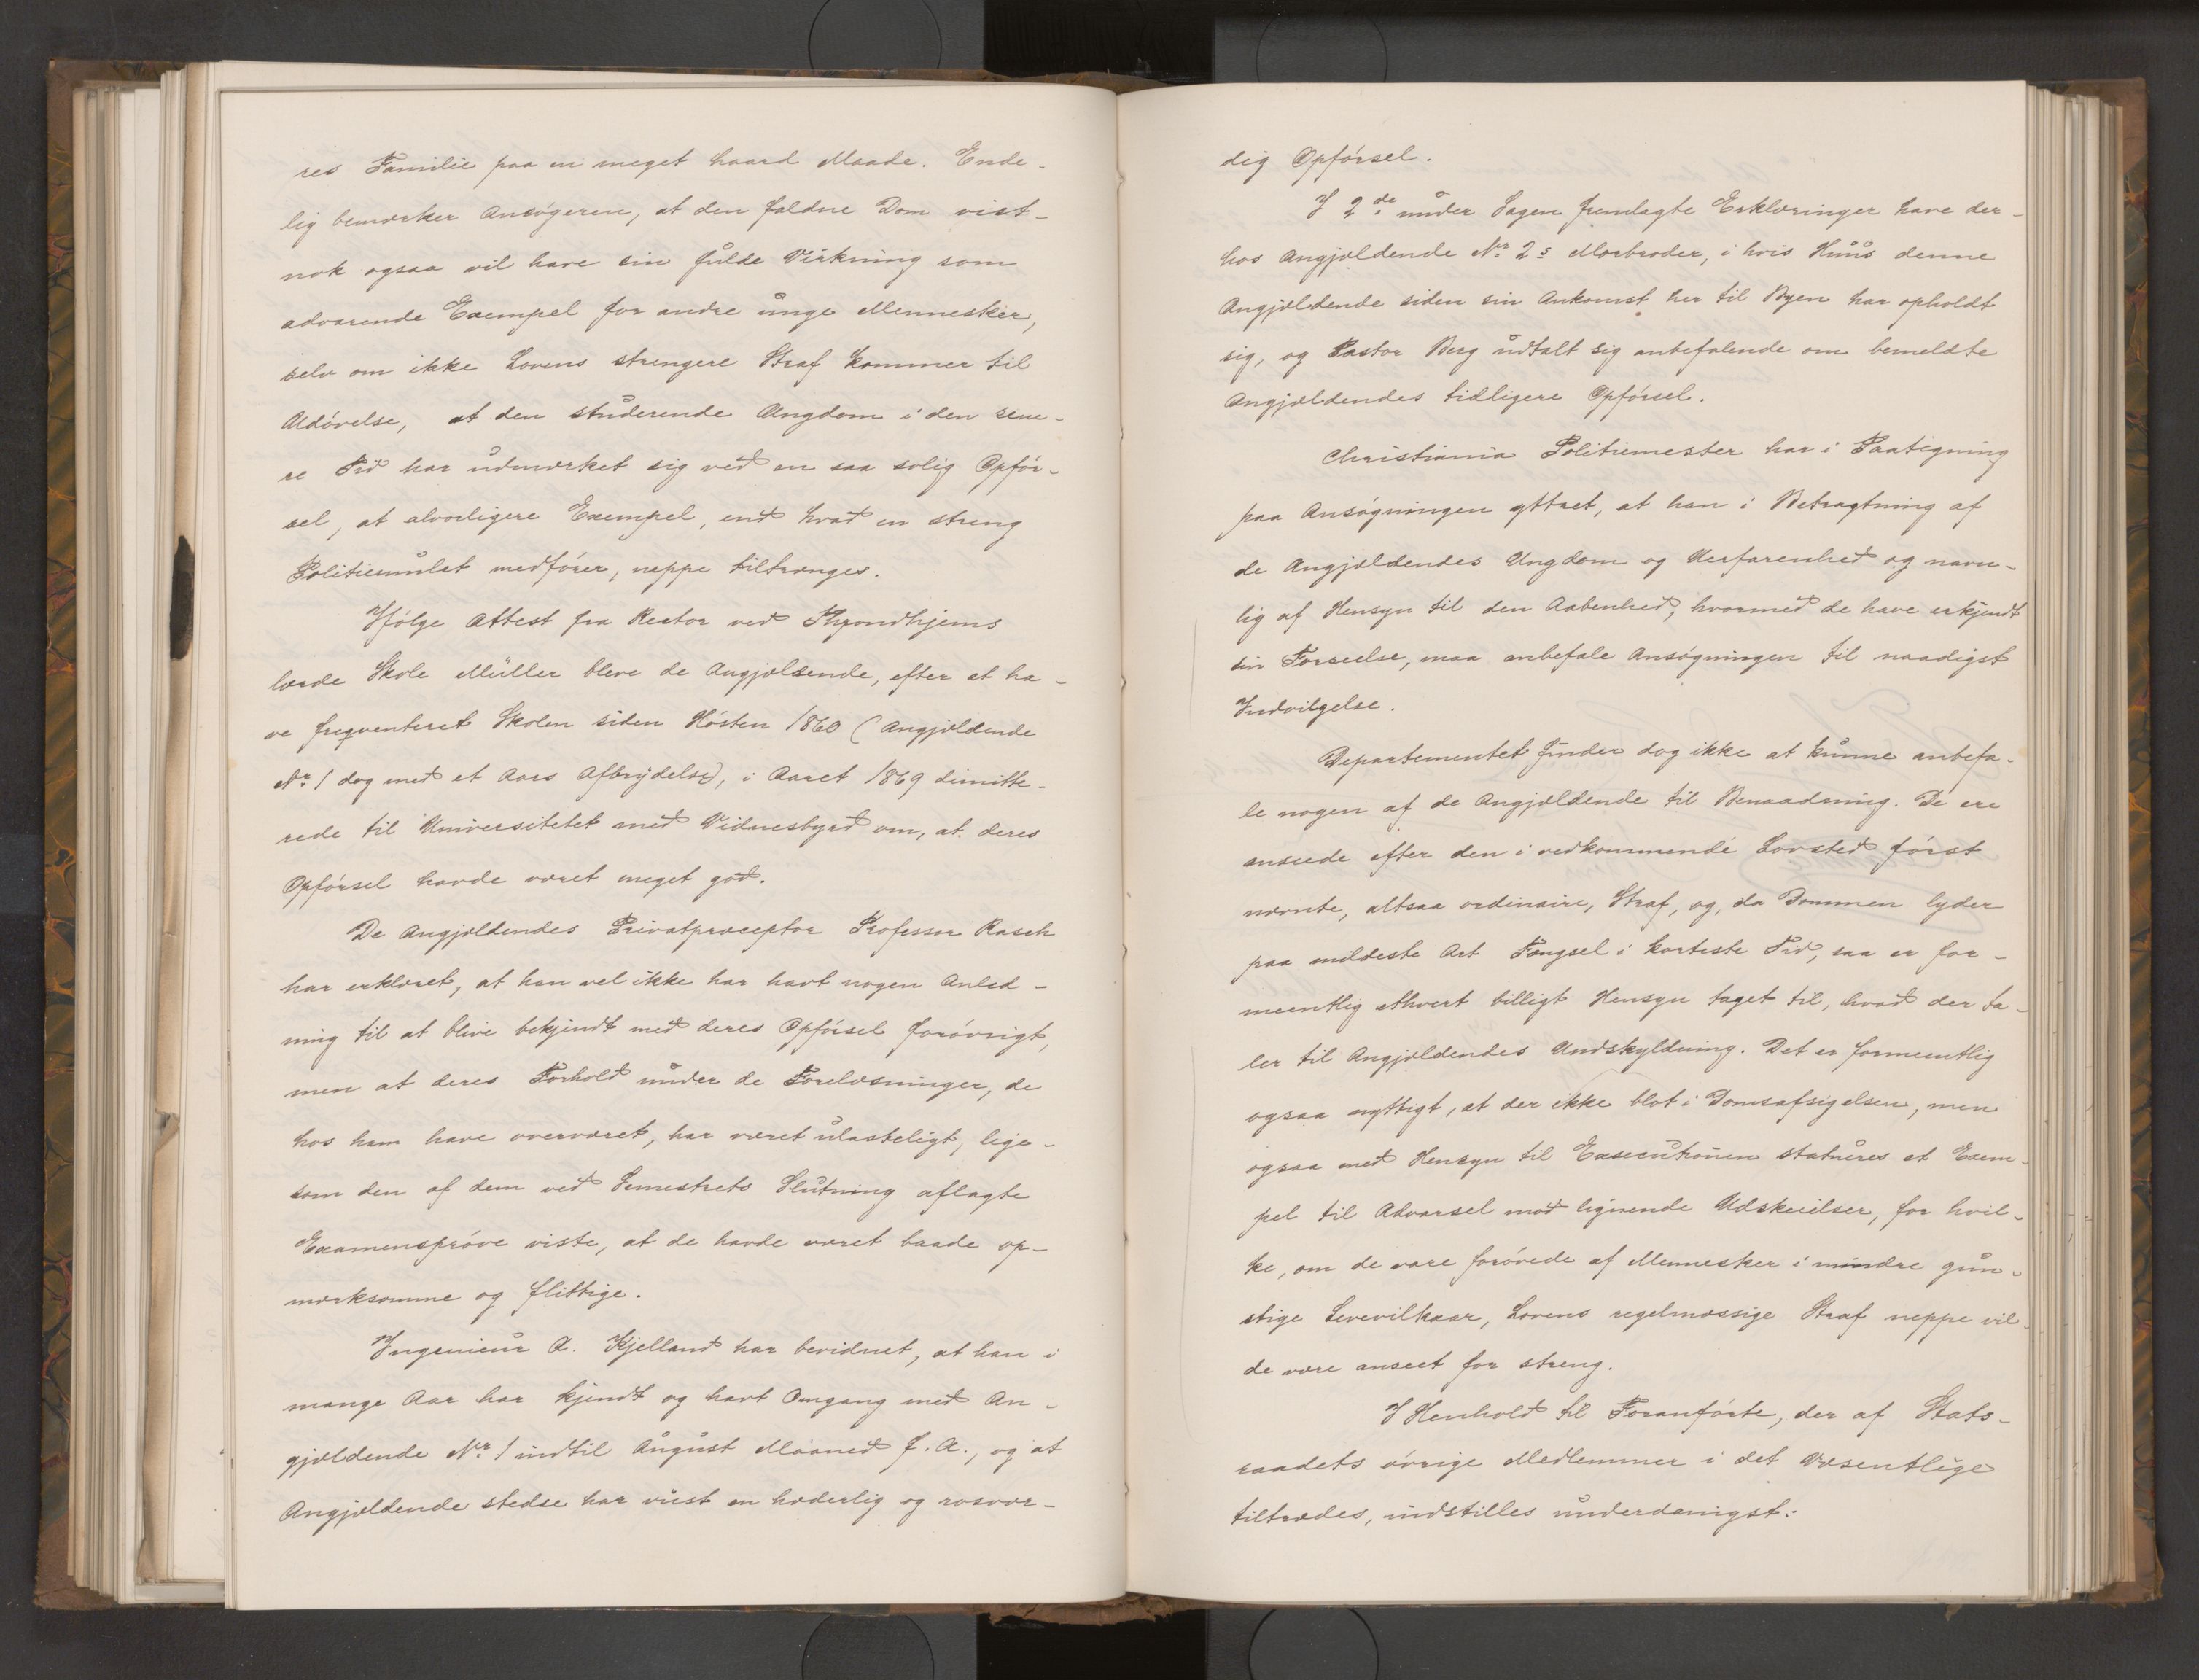 res Familie paa en meget haard Maade. Ende-
lig bemærker Ansøgeren, at den faldne Dom vist-
nok ogsaa vil have sin fulde Virkning som
advarende Exempel for andre unge Mennesker,
selv om ikke Lovens strengere Straf kommer til
Udøvelse, at den studerende Ungdom i den sene-
re Tid har udmærket sig ved en saa solig Opfør-
sel, at alvorligere Exempel, end hvad en streng
Politiemulct medfører, neppe tiltrænges.
Ifølge Attest fra Rector ved Throndhjems
lærde Skole Müller bleve de Angjældende, efter at ha-
ve freqventeret Skolen siden Høsten 1860 (Angjældende
No. 1 dog med et Aars Afbrydelse), i Aaret 1869 dimitte-
rede til Universitetet med Vidnesbyrd om, at deres
Opførsel havde været meget god.
De Angjældendes Privatpræceptor Professor Rasch
har erklæret, at han vel ikke har havt nogen Anled-
ning til at blive bekjendt med deres Opførsel forøvrigt,
men at deres Forhold under de Forelæsninger, de
hos ham have overværet, har været ulasteligt, lige-
som den af dem ved Semestrets Slutning aflagte
Examensprøve viste, at de havde været baade op-
mærksomme og flittige.
Ingenieur A. Kjelland har bevidnet, at han i
mange Aar har kjendt og havt Omgang med An-
gjældende No. 1 indtil August Maaned f. A., og at
Angjældende stedse har viist en hæderlig og rosvær-
dig Opførsel.
I 2de under Sagen fremlagte Erklæringer have der-
hos Angjældende No. 2s Morbroder, i hvis Huus denne
Angjældende siden sin Ankomst her til Byen har opholdt
sig, og Pastor Berg udtalt sig anbefalende om bemeldte
Angjældendes tidligere Opførsel.
Christiania Politiemester har i Paategning
paa Ansøgningen yttret, at han i Betragtning af
de Angjældendes Ungdom og Uerfarenhed og navn-
lig af Hensyn til den Aabenhed, hvormed de have erkjendt
sin Forseelse, maa anbefale Ansøgningen til naadigst
Indvilgelse.
Departementet finder dog ikke at kunne anbefa-
le nogen af de Angjældende til Benaadning. De ere
anseede efter den i vedkommende Lovsted først
nævnte, altsaa ordinaire, Straf, og, da Dommen lyder
paa mildeste Art Fængsel i korteste Tid, saa er for-
meentlig ethvert billigt Hensyn taget til, hvad der ta-
ler til Angjældendes Undskyldning. Det er formeentlig
ogsaa nyttigt, at der ikke blot i Domsafsigelsen, men
ogsaa med Hensyn til Executionen statueres et Exem-
pel til Advarsel mod lignende Udskeielser, for hvil-
ke, om de vare forøvede af Mennesker i mindre gun-
stige Levevilkaar, Lovens regelmæssige Straf neppe vil-
de være anseet for streng.
I Henhold til Foranførte, der af Stats-
raadets øvrige Medlemmer i det Væsentlige
tiltrædes, indstilles underdanigst: